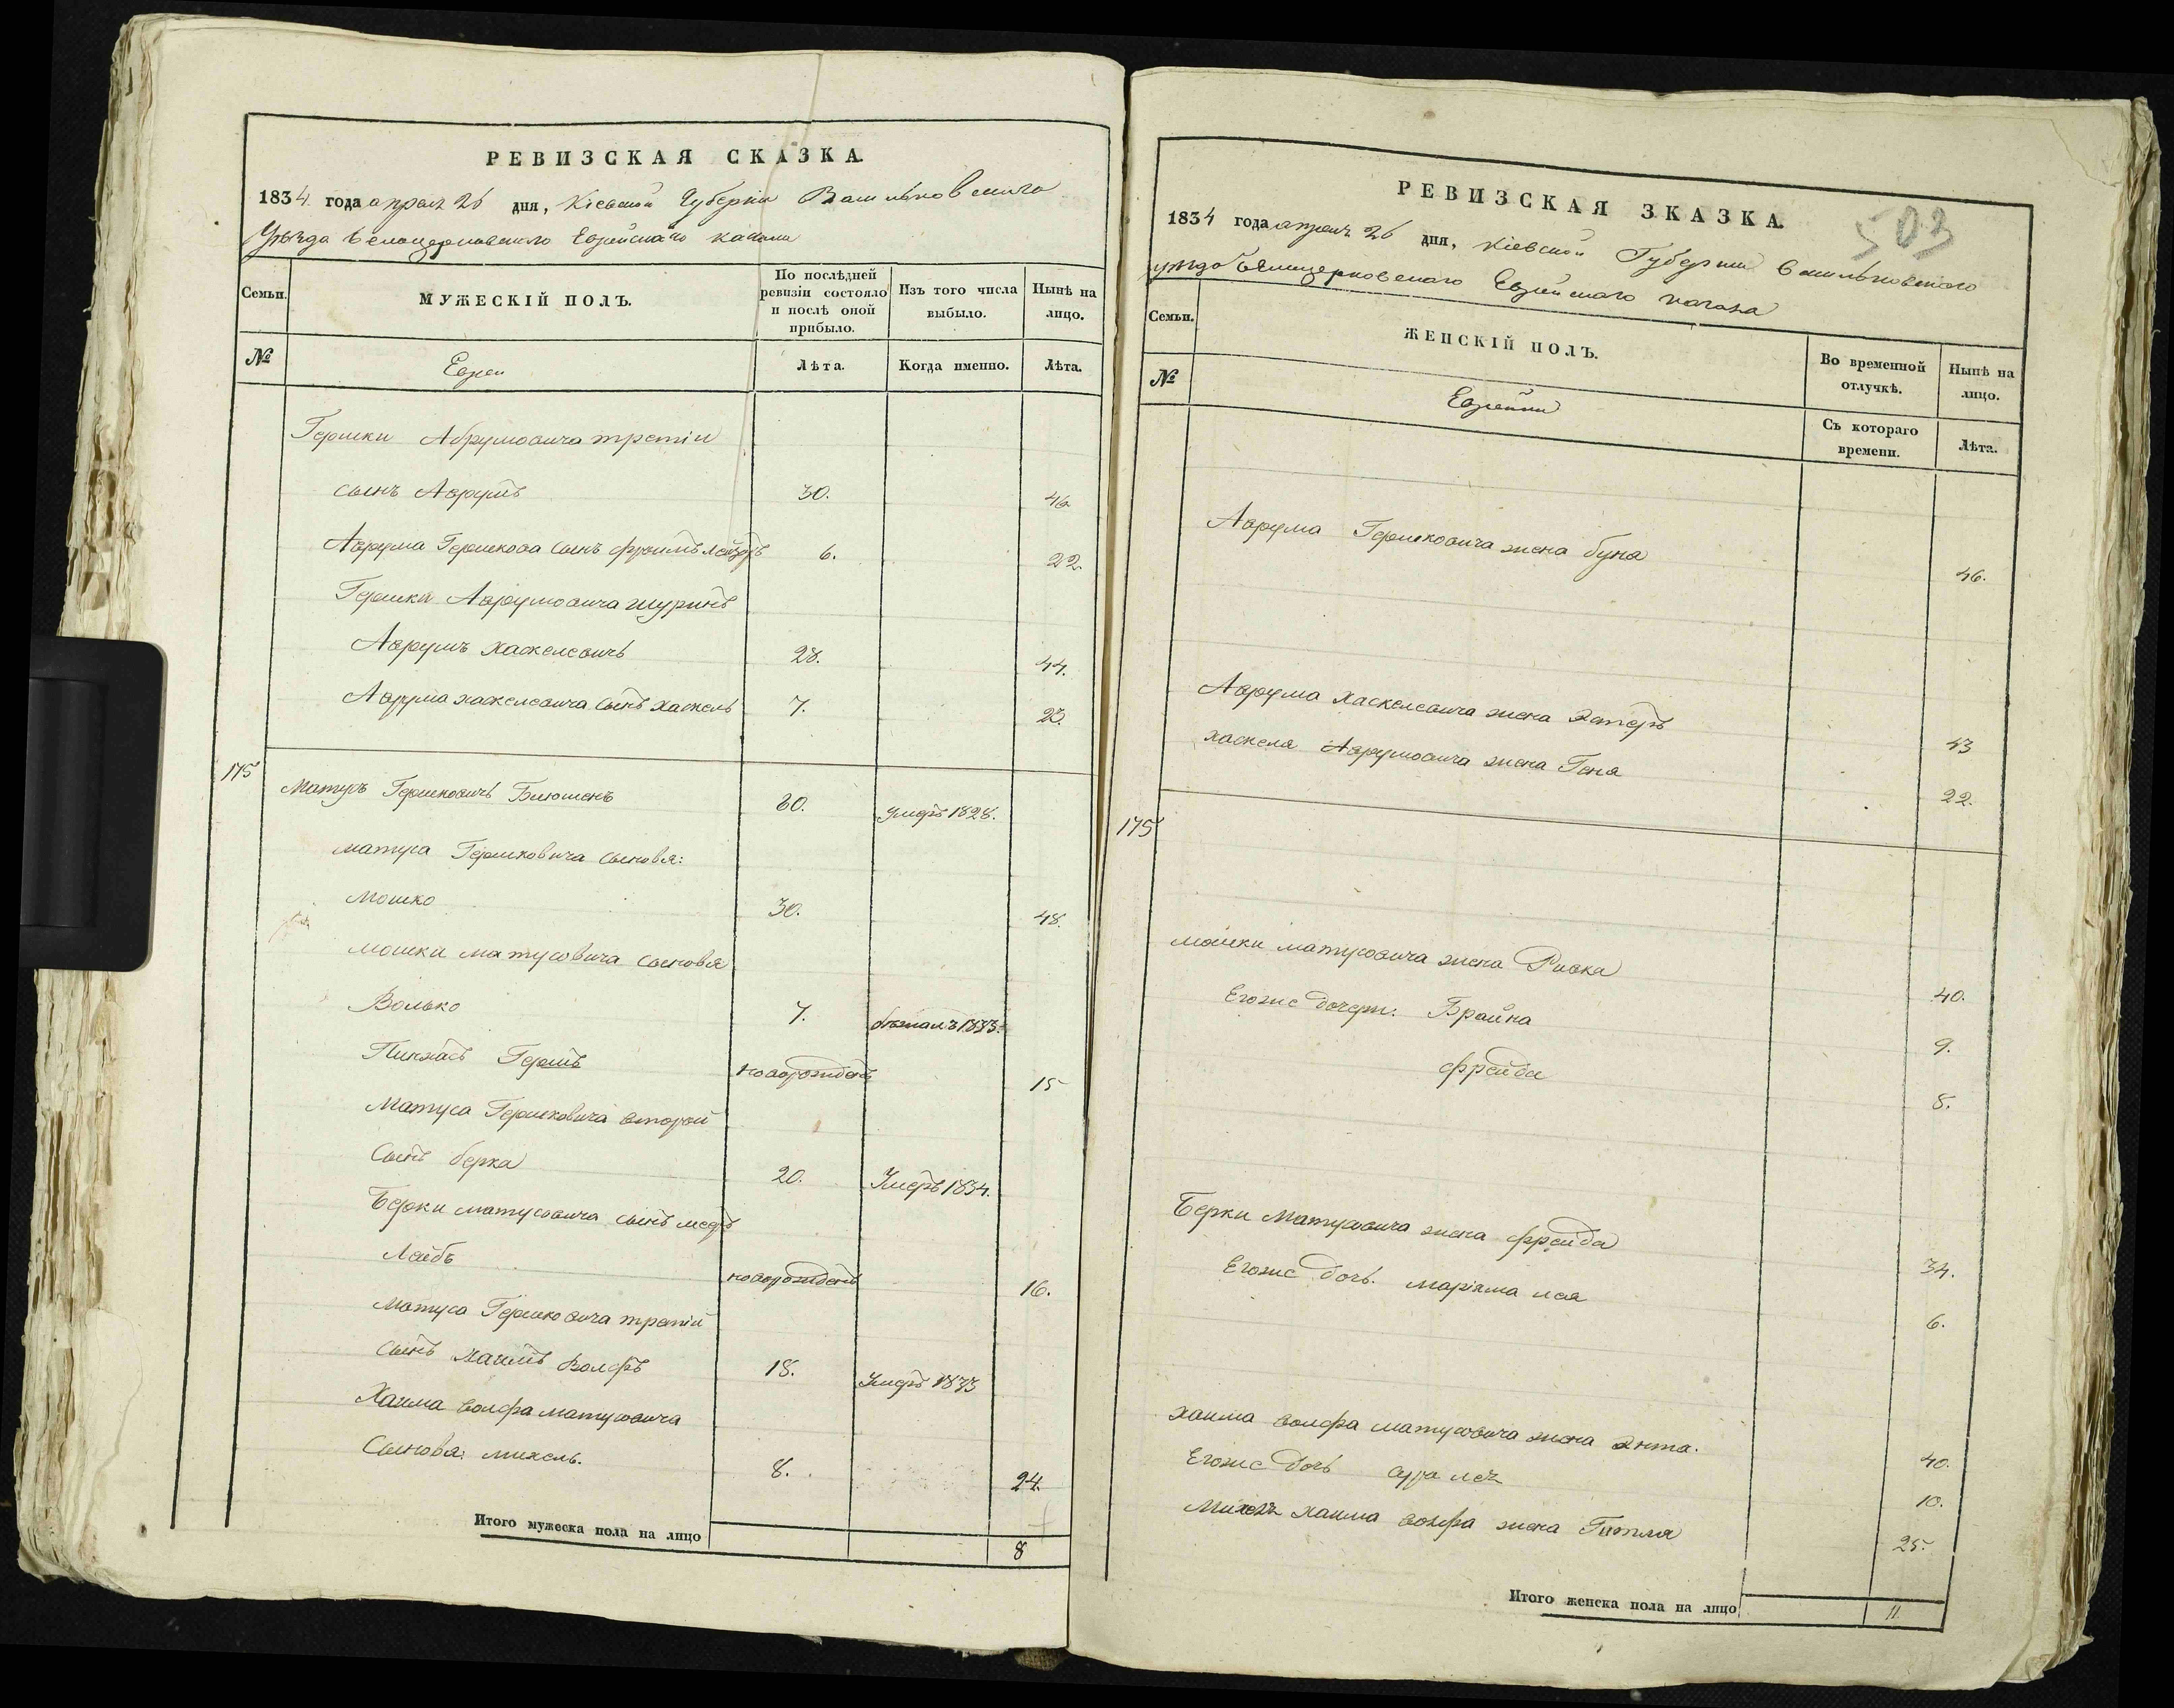 РЕВИЗСКАЯ СКАЗКА.
1834 года апреля 26 дня, Кіевской Губерніи Васильковскаго
Уѣзда Белоцерковскаго Еврейскаго кагала
Семьи.
МУЖЕСКІЙ ПОЛЪ.
По послѣдней ревизіи состояло и послѣ оной прибыло.
Изъ того числа выбыло.
Нынѣ на лицо.
№
Евреи
Лѣта.
Когда именно.
Лѣта.
Гершки Абрумовича третіи
сынъ Аврумъ 30. 46
Аврума Гершкова сынъ Фроимъ Лейзоръ 6. 22.
Гершки Аврумовича шуринъ
Аврумъ Хаскелевичъ 28. 44.
Аврума Хаскелевича сынъ Хаскель 7. 23.
175
Матусъ Гершковичъ 60. умеръ 1828.
Матуса Гершковича сыновя:
Мошко 30. 48.
Мошки Матусовича сыновя
Волько 7. бежалъ 1833.
Пинхасъ Гершъ новорожденъ 15
Матуса Гершковича второй
Сынъ берка 20. Умеръ 1834.
Берки Матусовича сынъ мееръ
Лейбъ новорожденъ 16.
Матуса Гершковича третіи
Сынъ Хаимъ Волфъ 18. Умеръ 1833
Хаима Волфа Матусовича
Сыновя: михель. 8. 24.
Итого мужеска пола на лицо 8
РЕВИЗСКАЯ ЗКАЗКА.
503
1834 года апреля 26 дня, Кіевской Губерніи Васильковскаго
уѣзда Белоцерковскаго Еврейскаго кагала
Семьи.
ЖЕНСКІЙ ПОЛЪ.
Во временной отлучкѣ.
Нынѣ на лицо.
№
Еврейки
Съ котораго времени.
Лѣта.
Аврума Гершковича жена буна 46.
Аврума Хаскелевича жена Эстеръ 43
Хаскеля Аврумовича жена Геня 22.
175
Мошки Матусовича жена Ривка 40.
Егоже дочери: Брайна 9.
фрейда 8.
Берки Матусовича жена фрейда 34.
Егоже дочь. маріяма лея 6.
Хаима волфа матусовича жена Энта. 40.
Егоже дочь сура лея 10.
Михеля Хаима волфа жена Гитля 25.
Итого женска пола на лицо 11